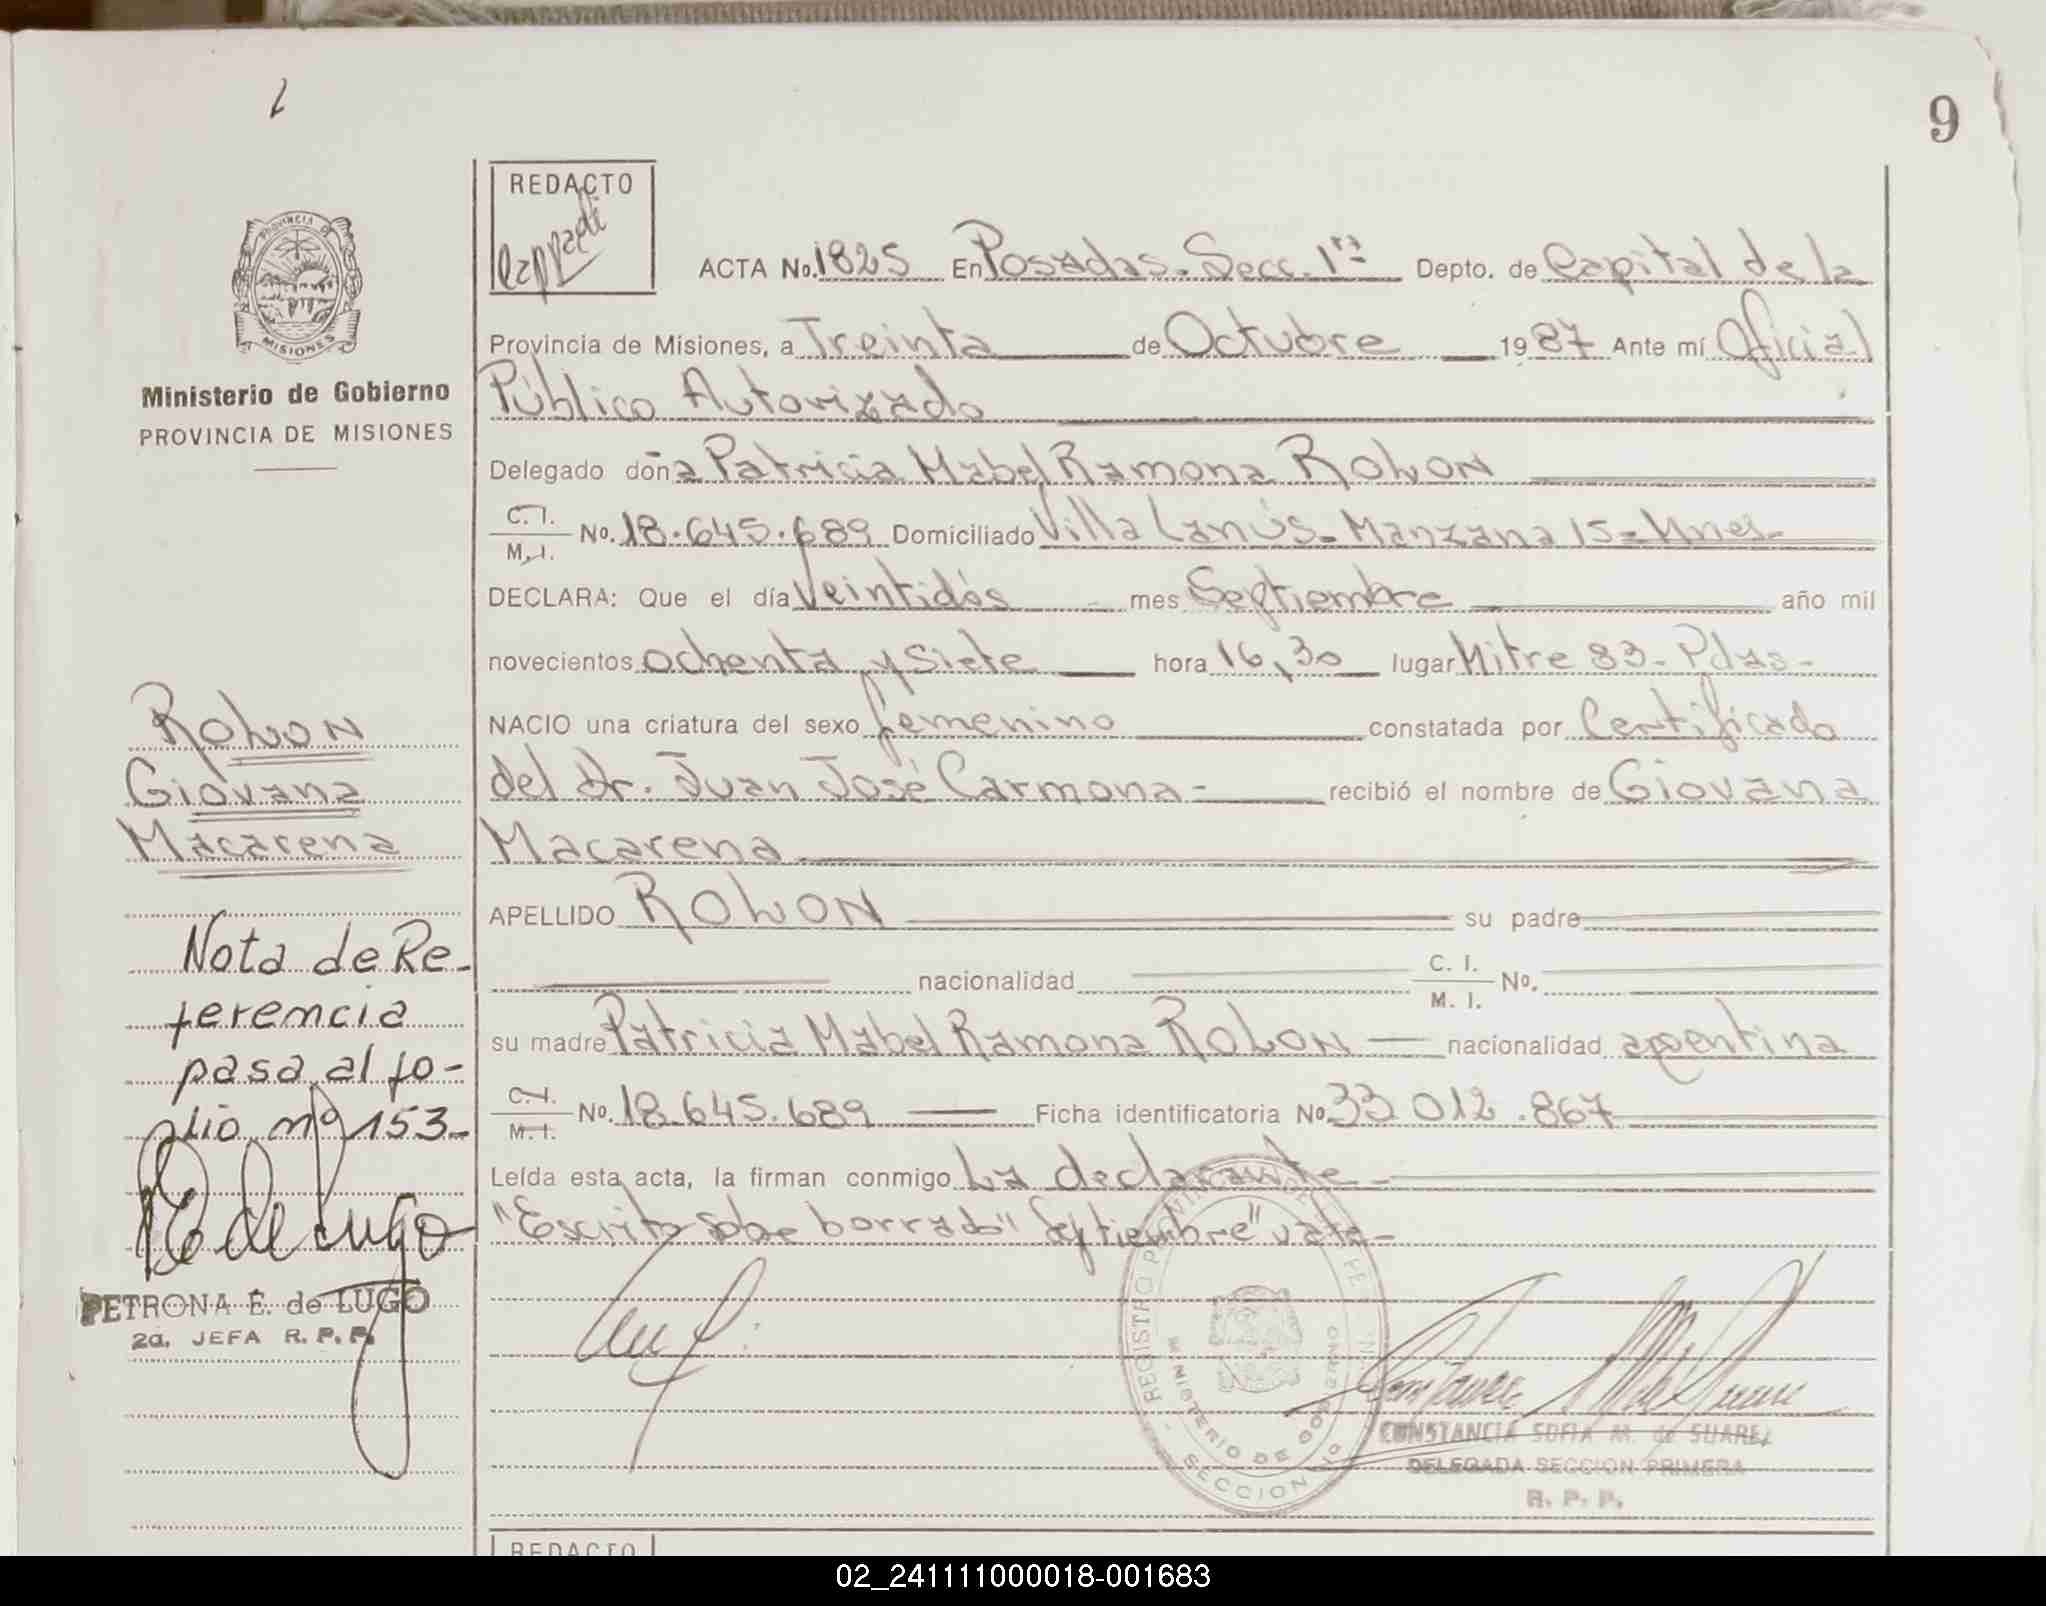 9
REDACTO
ACTA No. 1825 En Posadas - Secc. 1ra Depto. de Capital de la
PROVINCIA DE
MISIONES
Provincia de Misiones, a Treinta de Octubre 1987 Ante mí Oficial
Ministerio de Gobierno
PROVINCIA DE MISIONES
Público Autorizado
Delegado doña Patricia Mabel Ramona ROLON
C. I. M. I. No. 18.645.689 Domiciliado Villa Lanús - Manzana 15 -
DECLARA: Que el día Veintidós mes Septiembre año mil
novecientos ochenta y siete hora 16,30 lugar Mitre 83 - Pdas -
NACIO una criatura del sexo femenino constatada por Certificado
del Dr. Juan José Carmona - recibió el nombre de Giovana
Macarena
APELLIDO ROLON su padre
nacionalidad C. I. M. I. No.
su madre Patricia Mabel Ramona ROLON nacionalidad argentina
C. I. M. I. No. 18.645.689 Ficha identificatoria No. 33 012 .867
Leída esta acta, la firman conmigo La declarante -
"Escrito sobre borrado" Septiembre" vale -
ROLON
Giovana
Macarena
Nota de Re-
ferencia
pasa al fo-
lio nº 153-
PE de Lugo
PETRONA E. de LUGO
2a. JEFA R. P. P.
REGISTRO PROVINCIAL DE
MINISTERIO DE GOBIERNO
SECCION
CONSTANCIA SOFIA M. de SUAREZ
DELEGADA SECCION PRIMERA
R. P. P.
REDACTO
02_241111000018-001683